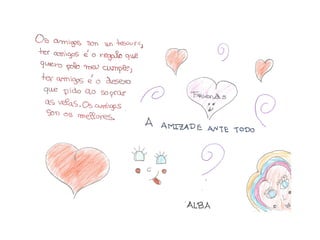 Os amigos son un tesouro,
ter amigos é o regalo que
quero polo meu cumple,
ter amigos é o desexo
que pido ao soprar
as velas. Os amigos
son os mellores.
A AMIZADE ANTE TODO
ALBA